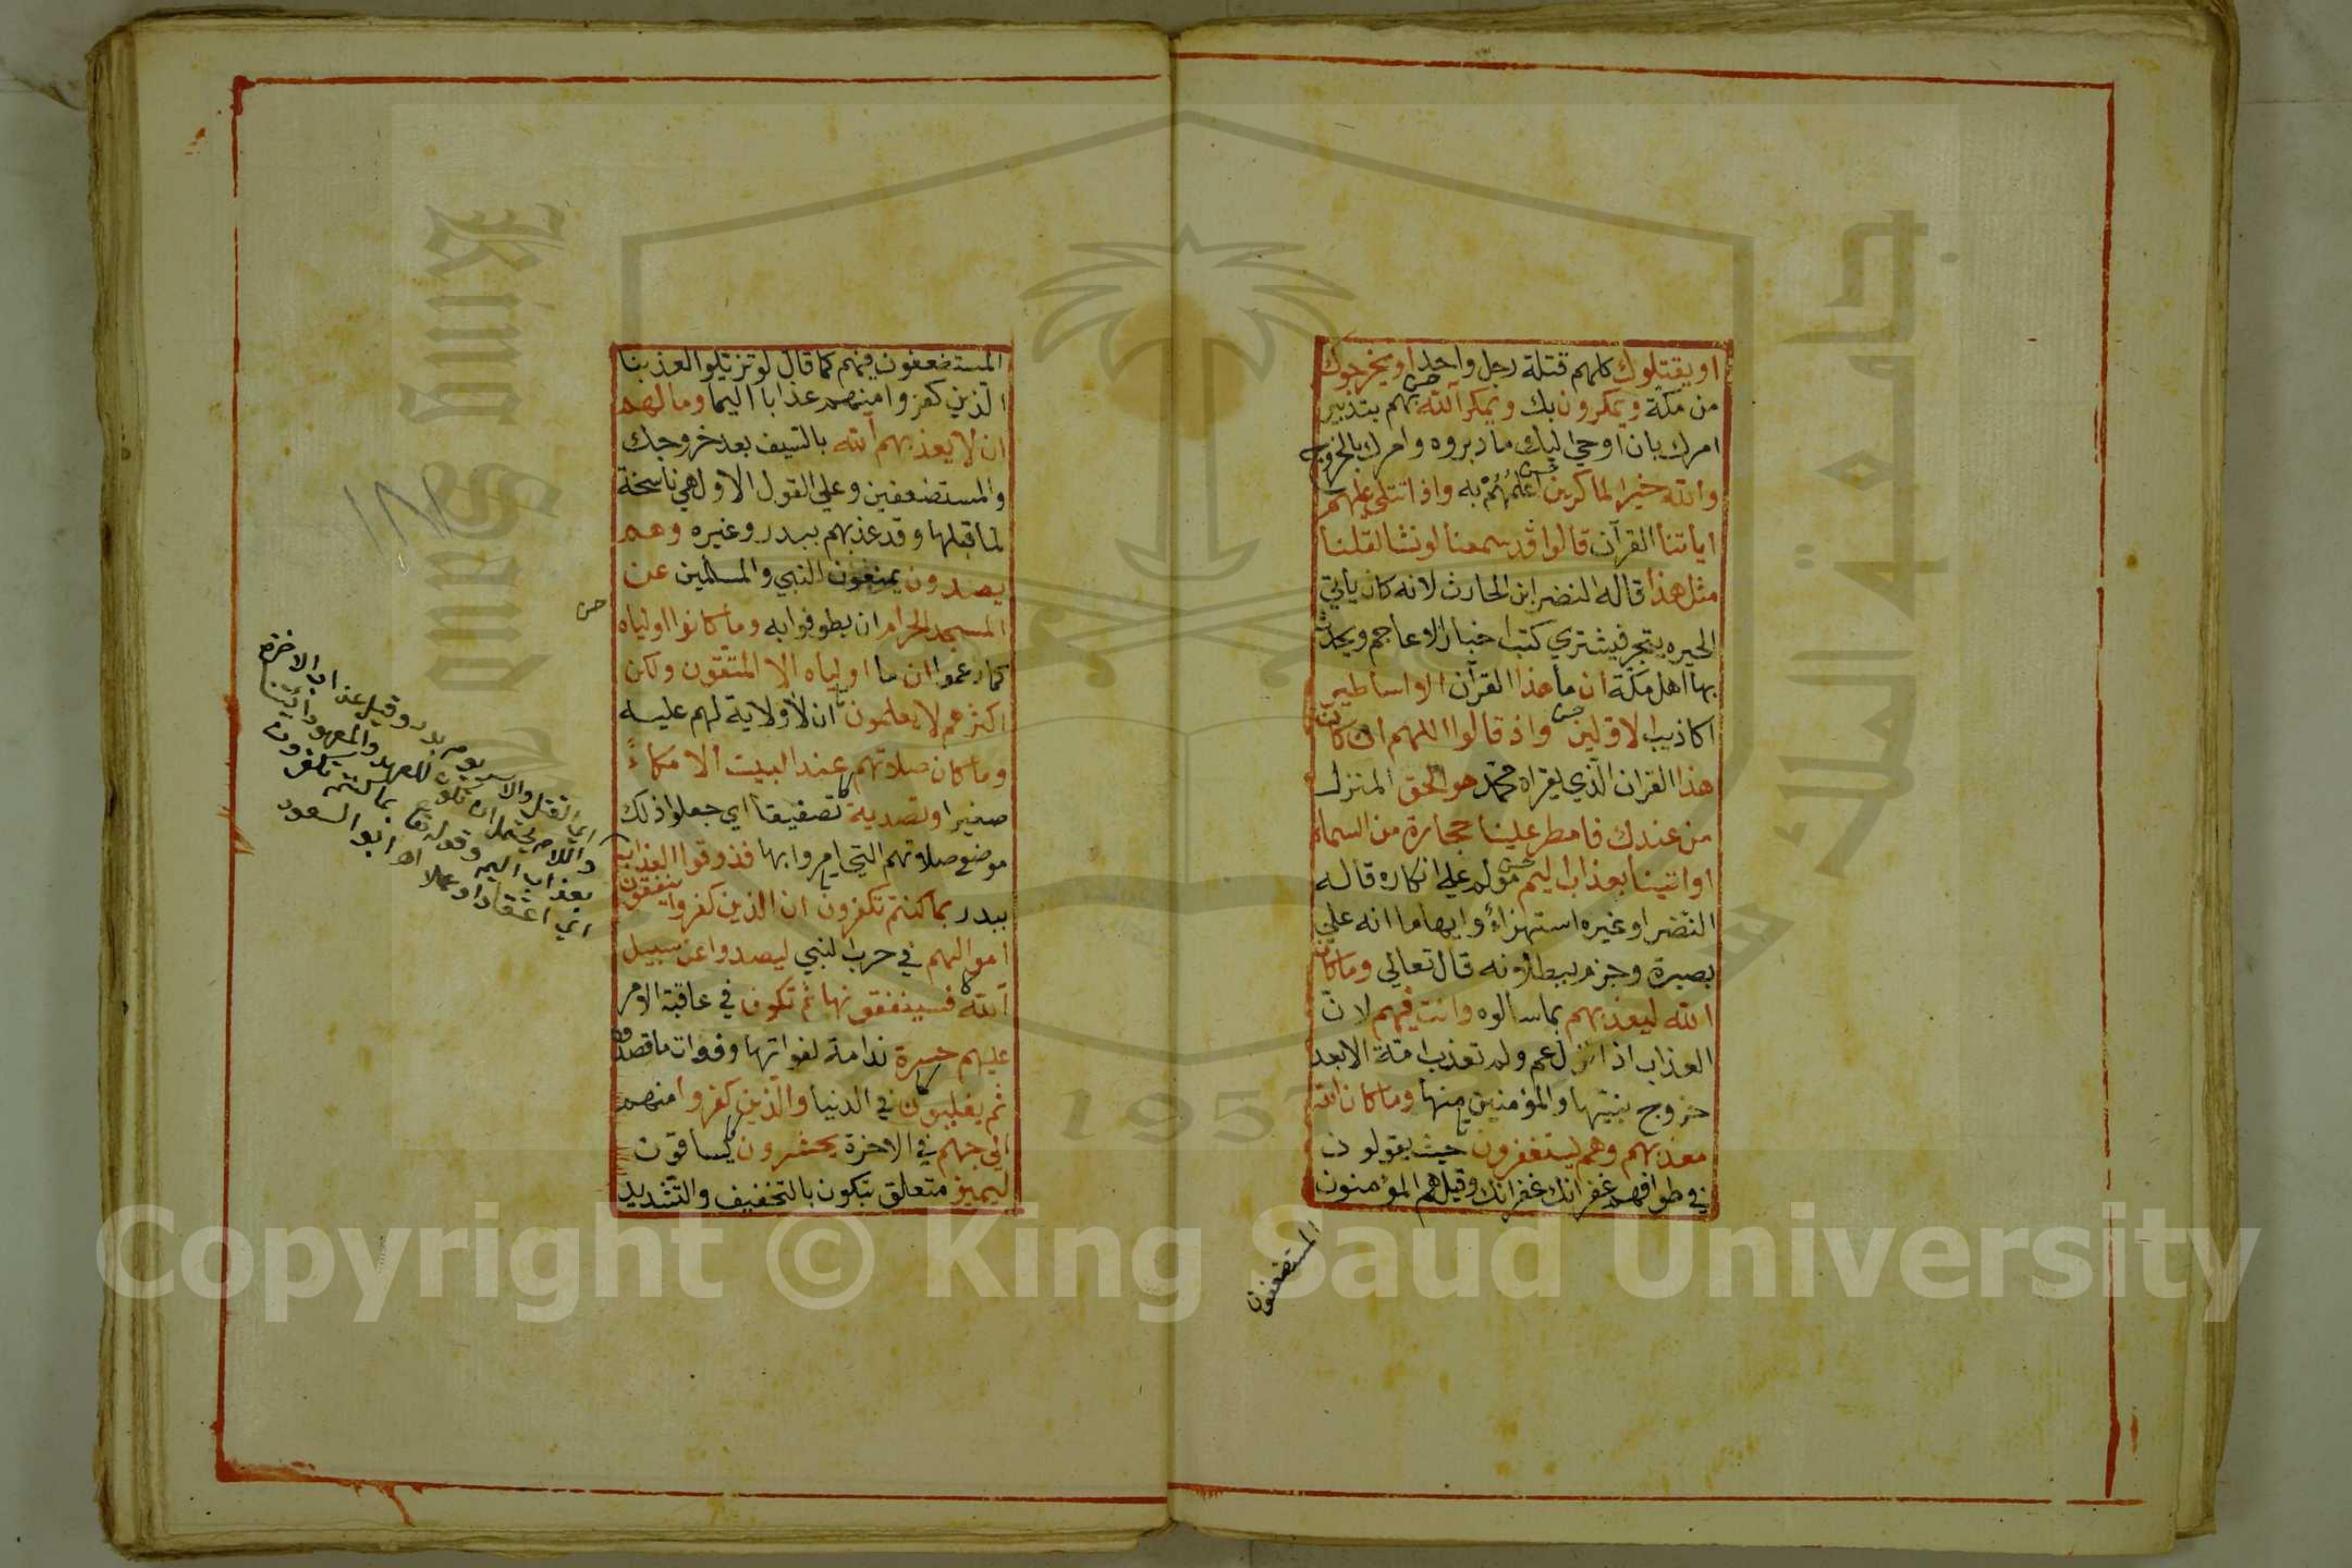 او يقتلوك كلهم قتلة رجل واحد او يخرجوك
من مكة ويمكرون بك ويمكر الله بهم بتدبير
امرك بان اوحي اليك ما دبروه وامرك بالخروج
والله خير الماكرين اعلمهم به واذا تتلى عليهم
اياتنا القرآن قالوا قد سمعنا لو نشا لقلنا
مثل هذا قاله النضر ابن الحارث لانه كان ياتي
الحيره يتجر فيشتري كتب اخبار الاعاجم ويحدث
بها اهل مكة ان ما هذا القرآن الا اساطير
اكاذيب الاولين واذ قالوا اللهم ان كان
هذا القران الذي يقراه محمد هو الحق المنزل
من عندك فامطر علينا حجارة من السماء
او ائتينا بعذاب اليم مولم علي انكاره قاله
النضر او غيره استهزاءً وايهاما انه علي
بصيرة وجزم ببطلانه قال تعالي وما كان
الله ليعذبهم بما سالوه وانت فيهم لان
العذاب اذا نزل عم ولم تعذب امة الا بعد
خروج نبيها والمؤمنين منها وما كان الله
معذبهم وهم يستغفرون حيث يقولون
في طوافهم غفرانك غفرانك وقيل هم المؤمنون
المستضعفون
المستضعفون فيهم كما قال لو تزيلوا لعذبنا
الذين كفروا منهم عذابا اليما وما لهم
ان لا يعذبهم الله بالسيف بعد خروجك
والمستضعفين وعلي القول الاول هي ناسخة
لما قبلها وقد عذبهم ببدر وغيره وهم
يصدون يمنعون النبي والمسلمين عن
المسجد الحرام ان يطوفوا به وما كانوا اولياه
كما زعموا ان ما اولياه الا المتقون ولكن
اكثرهم لا يعلمون ان لا ولاية لهم عليه
وما كان صلاتهم عند البيت الا مكاءً
صفيرا وتصدية تصفيقا اي جعلوا ذلك
موضع صلاتهم التي امروا بها فذوقوا العذاب
ببدر بما كنتم تكفرون ان الذين كفروا ينفقون
اموالهم في حرب النبي ليصدوا عن سبيل
الله فسينفقونها ثم تكون في عاقبة الامر
عليهم حسرة ندامة لفواتها وفوات ما قصدوه
ثم يغلبون في الدنيا والذين كفروا منهم
الي جهنم في الاخرة يحشرون يساقون
ليميز متعلق بتكون بالتخفيف والتشديد
اي القتل والاسر يوم بدر وقيل عذاب الاخرة
واللام يحتمل ان تكون للعهد والمعهود ائتنا
بعذاب اليم وقوله تع بما كنتم تكفرون
اي اعتقادا وعملا اه ابو السعود
King Saud
جامعة الملك سعود
1957
Copyright © King Saud University